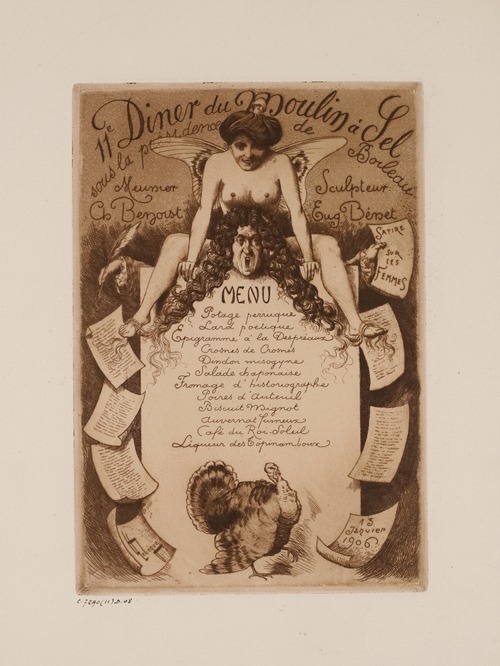 11e Diner du Moulin à Sel
sous la présidence de Boileau
Meunier
Ch Benoist
Sculpteur
Eug Bénet
SATIRE
SUR
LES
FEMMES
MENU
Potage perruque
Lard poétique
Epigramme à la Despréaux
Crosnes de Cromes
Dindon misogyne
Salade chaponaise
Fromage d'historiographe
Poires d'Auteuil
Biscuit Mignot
Auvernat fumeux
Café du Roi-Soleil
Liqueur des Topinamboux
13
Janvier
1906